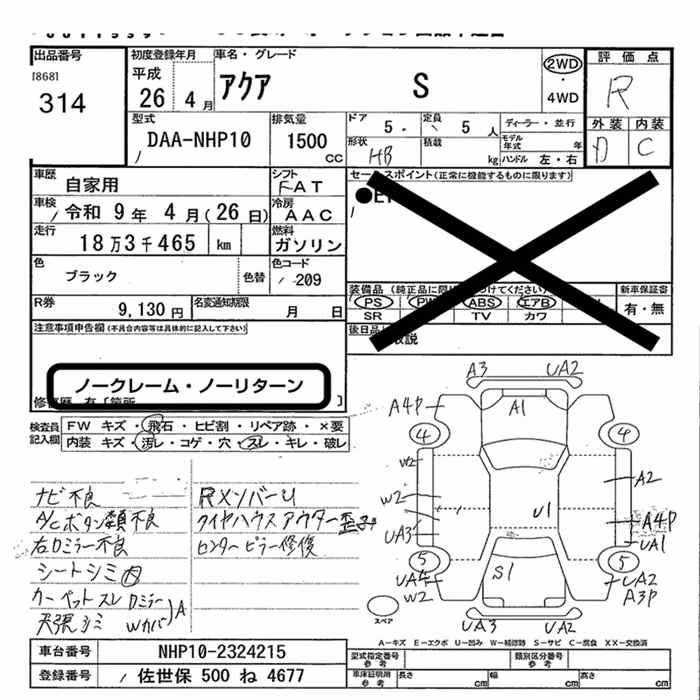 出品番号
[868]
314
初度登録年月
平成
26 4月
車名・グレード
アクア S
2WD
・
4WD
評価点
R
外装 内装
D C
型式
DAA-NHP10
排気量
1500
CC
ドア
5
定員
5人
ディーラー・並行
形状
HB
積載
kg
モデル年式 年
ハンドル 左・右
車歴
自家用
シフト
FAT
車検
令和 9年 4月(26日)
冷房
AAC
走行
18万3千465 km
燃料
ガソリン
色
ブラック
色替
色コード
209
R券
9,130円
名変通知期限
月 日
セールスポイント(正常に機能するものに限ります)
装備品
PS PW ABS エアB
SR TV カワ
新車保証書
有・無
注意事項申告欄(不具合内容等は具体的に記入して下さい)
ノークレーム・ノーリターン
検査員
記入欄
FW キズ・飛石・ヒビ割・リペア跡・×要
内装 キズ・汚レ・コゲ・穴・スレ・キレ・破レ
ナビ不良
A/Cボタン類不良
右Dミラー不良
シートシミ大
カーペットスレ Dミラー
天張シミ Wカバー A
RメンバーU
タイヤハウスアウター歪
センターピラー修復
A3 UA2
A4P A1
4 4
W2
W2 U1 A2
UA3 A4P
UA1
5 5
UA4 S1 UA2
W2 A3P
スペア
UA3 UA2
A-キズ E-エクボ U-凹み W-補修跡 S-サビ C-腐食 XX-交換済
車台番号
NHP10-2324215
型式指定番号
参考
類別区分番号
参考
登録番号
佐世保 500 ね 4677
車庫証明用
参考
長さ cm
幅 cm
高さ cm